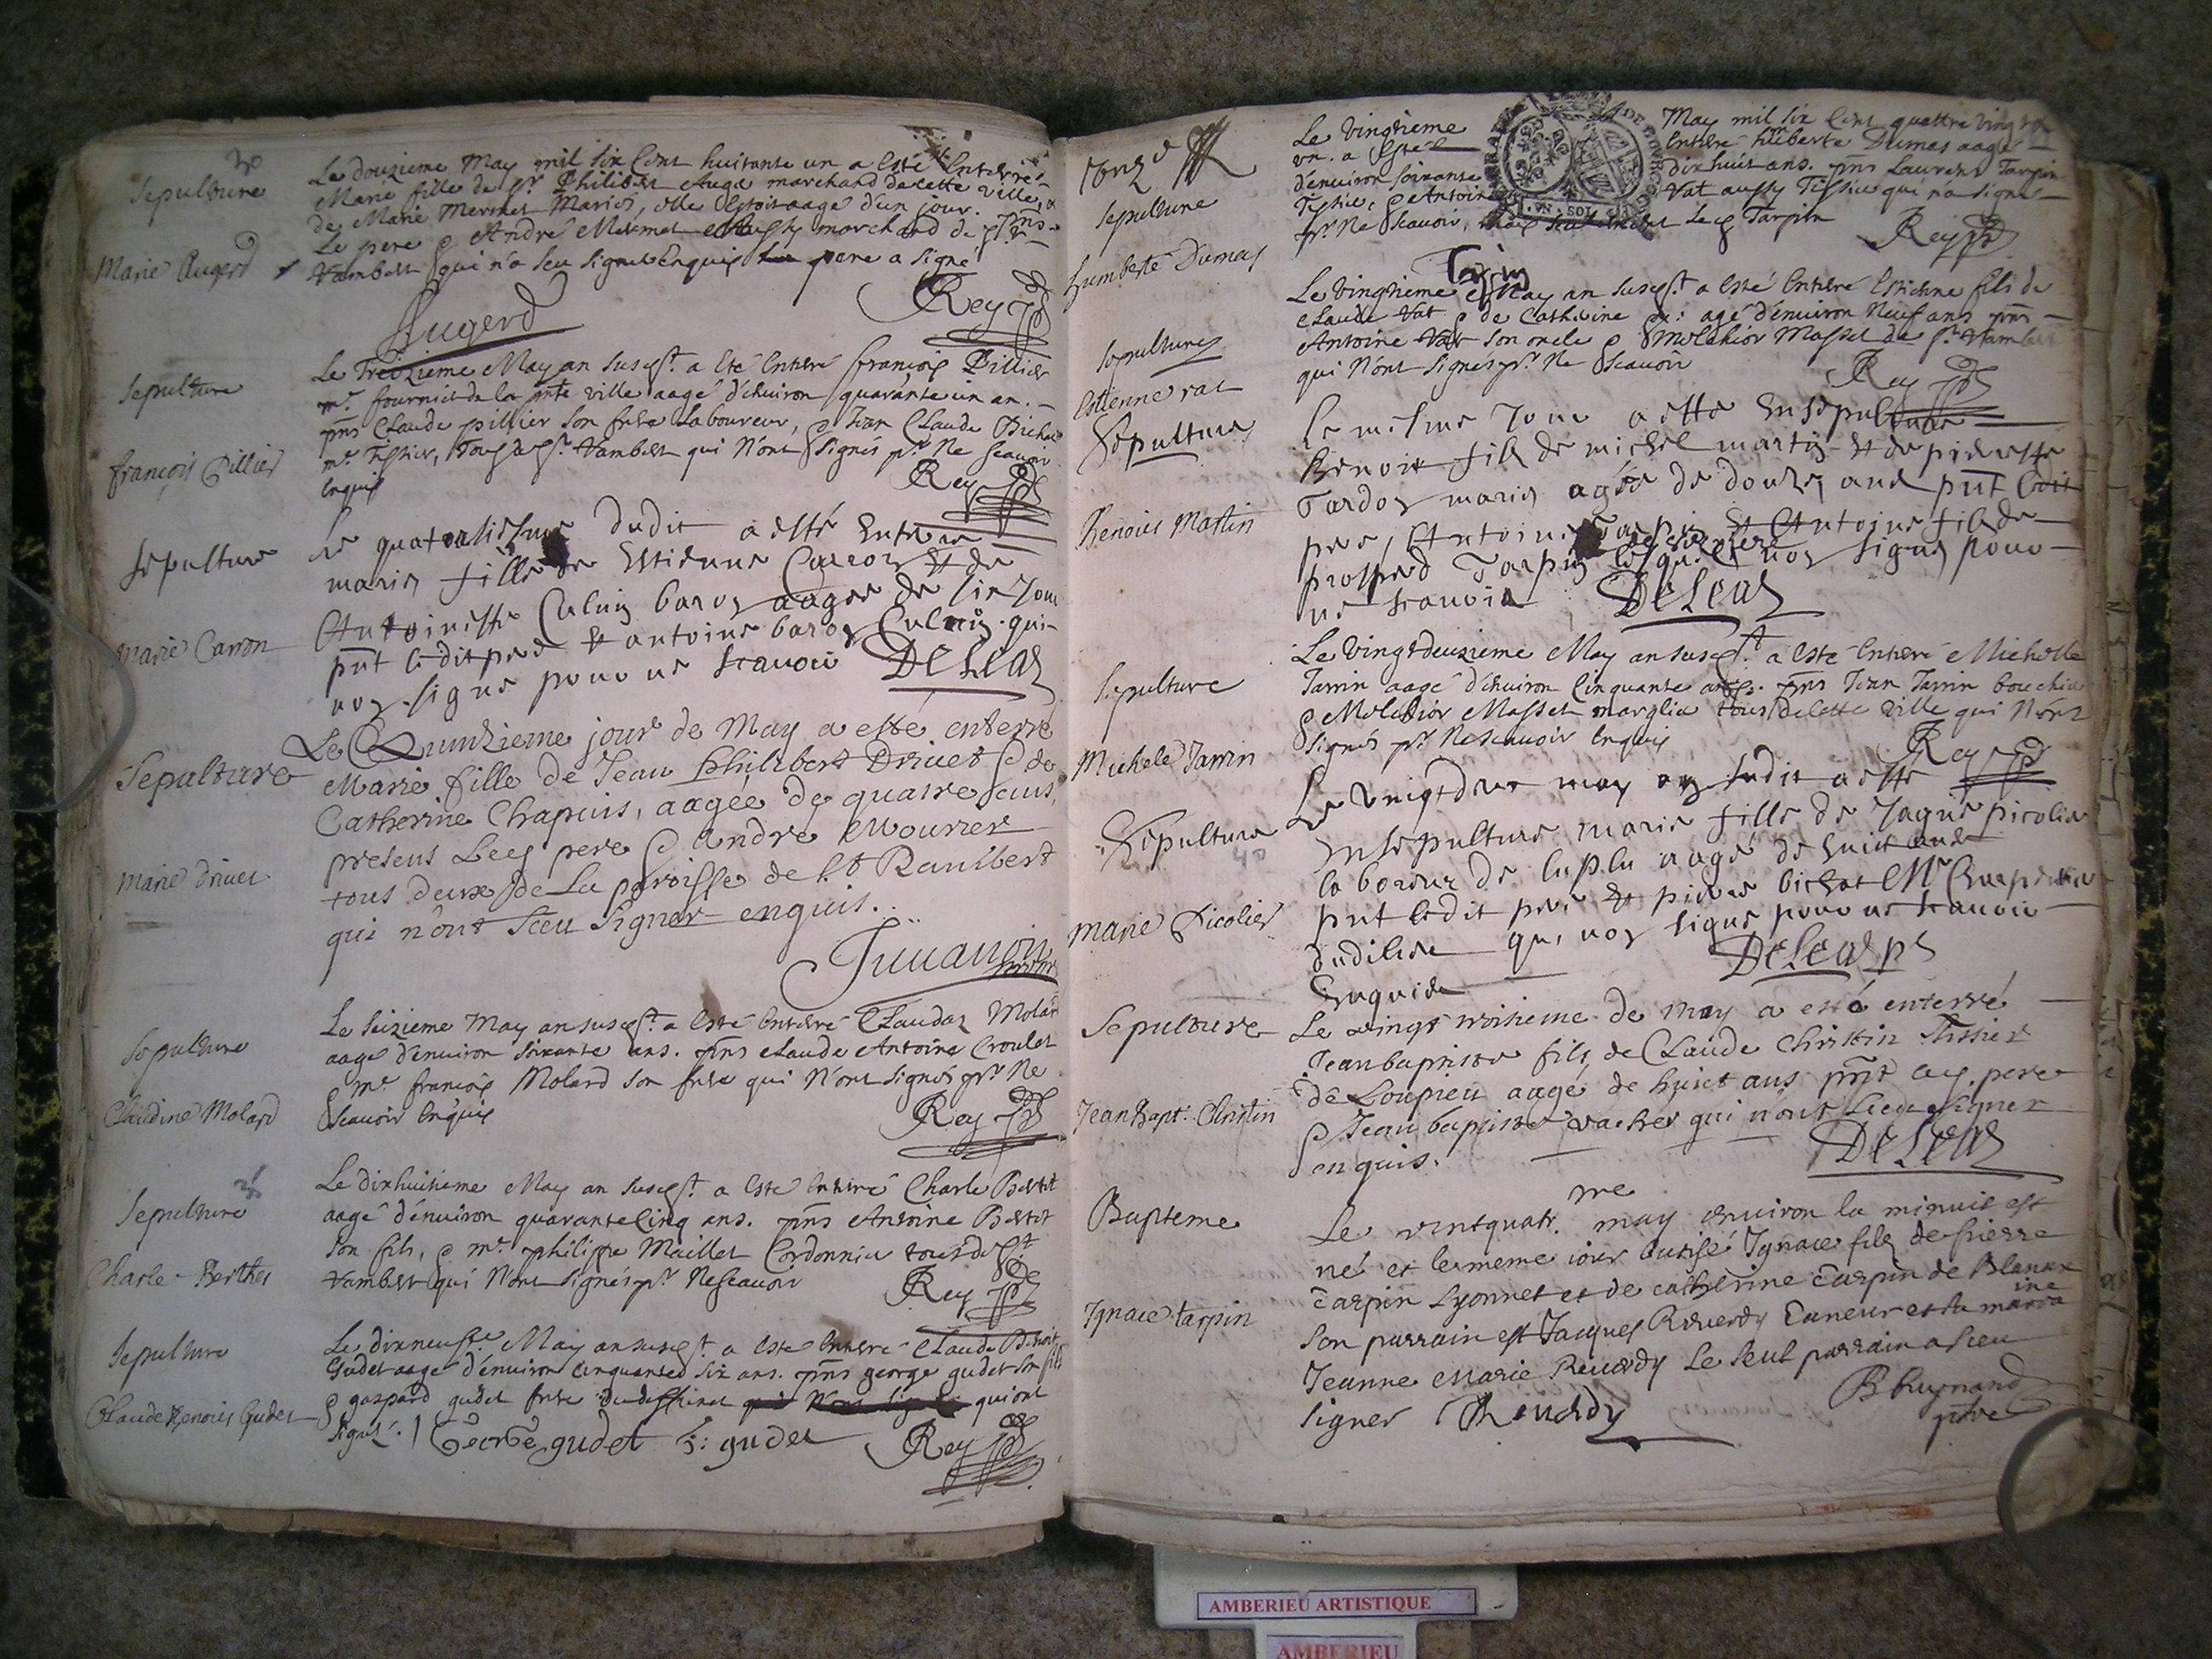 30
Sepulture
Marie Augerd
Le douzieme May mil six Cent huitante un a Esté Enterré
Marie fille de Sr Philibert Auge marchand de cette ville, &
de Marie Mermet Mariés, elle Estoit aage d'un jour. pnts
Le pere & André Mermet aussy marchand de St
Rambert qui n'a seu signer Enquis le pere a signé
Augerd
Rey
Sepulture
françois Pillier
Le Treizieme May an susdt a Eté Enterré françois Pillier
mr fournier de la pnte ville aagé d'environ quarante un an.
pnts Claude pillier son frere Laboureur, & Jean Claude Bichat
mr Tissier, Tous de St Rambert qui N'ont signés pr Ne scavoir
Enquis
Rey
Sepulture
Marie Carron
Le quatorzieme dudit a esté Enterre
marie fille de Estienne Carron et de
Anthoinette Caluin baron aagee de six Jour
pnt ledit pere et antoine baron Caluin qui
non signe pour ne scavoir
Sepulture
Marie drivet
Le Quinzieme jour de May a esté enterré
Marie fille de Jean Philibert Drivet & de
Catherine Chapuis, aagée de quatre ans,
presens Ledt pere & André Mourier
tous deux de La paroisse de St Rambert
qui n'ont sceu signer enquis.
Juvanon
Sepulture
Claudine Molard
Le seizieme May an susdt a Esté Enterré Claudaz Molar
aage d'environ soixante ans. pnts Claude Antoine Croulet
& mr françois Molard son frere qui N'ont signés pr Ne
scavoir Enquis
Rey
Sepulture
Charle Berthet
Le dixhuitieme May an susdt a Esté Enterré Charle Bertet
aagé d'environ quarante Cinq ans. pnts Antoine Bertet
son fils, & mr philippe Maillet Cordonnier tous de St
Rambert qui N'ont signés pr Ne scavoir
Rey
Sepulture
Claude Benoist Gudet
Le dixneufe May an susdt a Esté Enterré Claude Benoit
Gudet aagé d'environ Cinquante six ans. pnts george gudet son fils
& gaspard gudet frere du deffunct qui N'ont signé qui ont
signé.
George gudet
G: gudet
Rey
Sepulture
humberte Dumas
Le Vingtieme May mil six Cent quattre vingt
un. a Esté Enterré humberte Dumas aagé
d'environ soixante dix huit ans. pnts Laurent Tarpin
Tissier, & Antoine Vat aussy Tissier qui n'a signé
pr Ne scavoir, Ledt Tarpin
Rey
Tarpin
Sepulture
Estienne vat
Le Vingtieme May an susdt a Esté Enterré Estienne fils de
Claude Vat & de Catherine agé d'environ Neuf ans pnts
Antoine Vat son oncle & Melchior Masset de St Rambert
qui N'ont signés pr Ne scavoir
Rey
Sepulture
Benoict Martin
Le mesme Jour a esté Ensepulture
Benoit fils de michel martin et de pierrette
Tardoz mariez agée de douze ans pnt ledit
pere, Antoine Tarpin et Antoine fils de
prosperd Tarpin lesquels non signes pour
ne scavoir
Sepulture
Michele Jarrin
Le Vingtdeuzieme May an susdt a Esté Enterré Michelle
Jarrin aagé d'environ Cinquante ans. pnts Jean Jarrin boucher
& Melchior Masset marglier tous de cette ville qui N'ont
signés pr Ne scavoir Enquis
Rey
Sepulture
Marie Picolier
Le vingtdeux may an sudit a esté
Ensepulture marie fille de Jaque picolier
laboreur de luplu aagé de huict ans
pnt ledit pere et pierre bichat Mr Charpentier
dudilieu qui non signe pour ne scavoir
Enquis
Sepulture
Jean Bapt: Christin
Le vingt troisieme de may a esté enterré
Jean baptiste fils de Claude Christin Tissier
de Loupieu aagé de huict ans pnt ledt pere
& Jean baptiste vacher qui n'ont sceu signer
enquis.
Bapteme
Ignace tarpin
Le vintquatr.me may environ la minuit est
né et le meme iour batisé Ignace fils de pierre
Tarpin Lyonnet et de catherine Tarpin de Blanax
son parrain est Jacques Reverdy Taneur et la maraine
Jeanne Marie Reverdy Le seul parrain a sceu
signer
Reverdy
AMBERIEU ARTISTIQUE
AMBERIEU